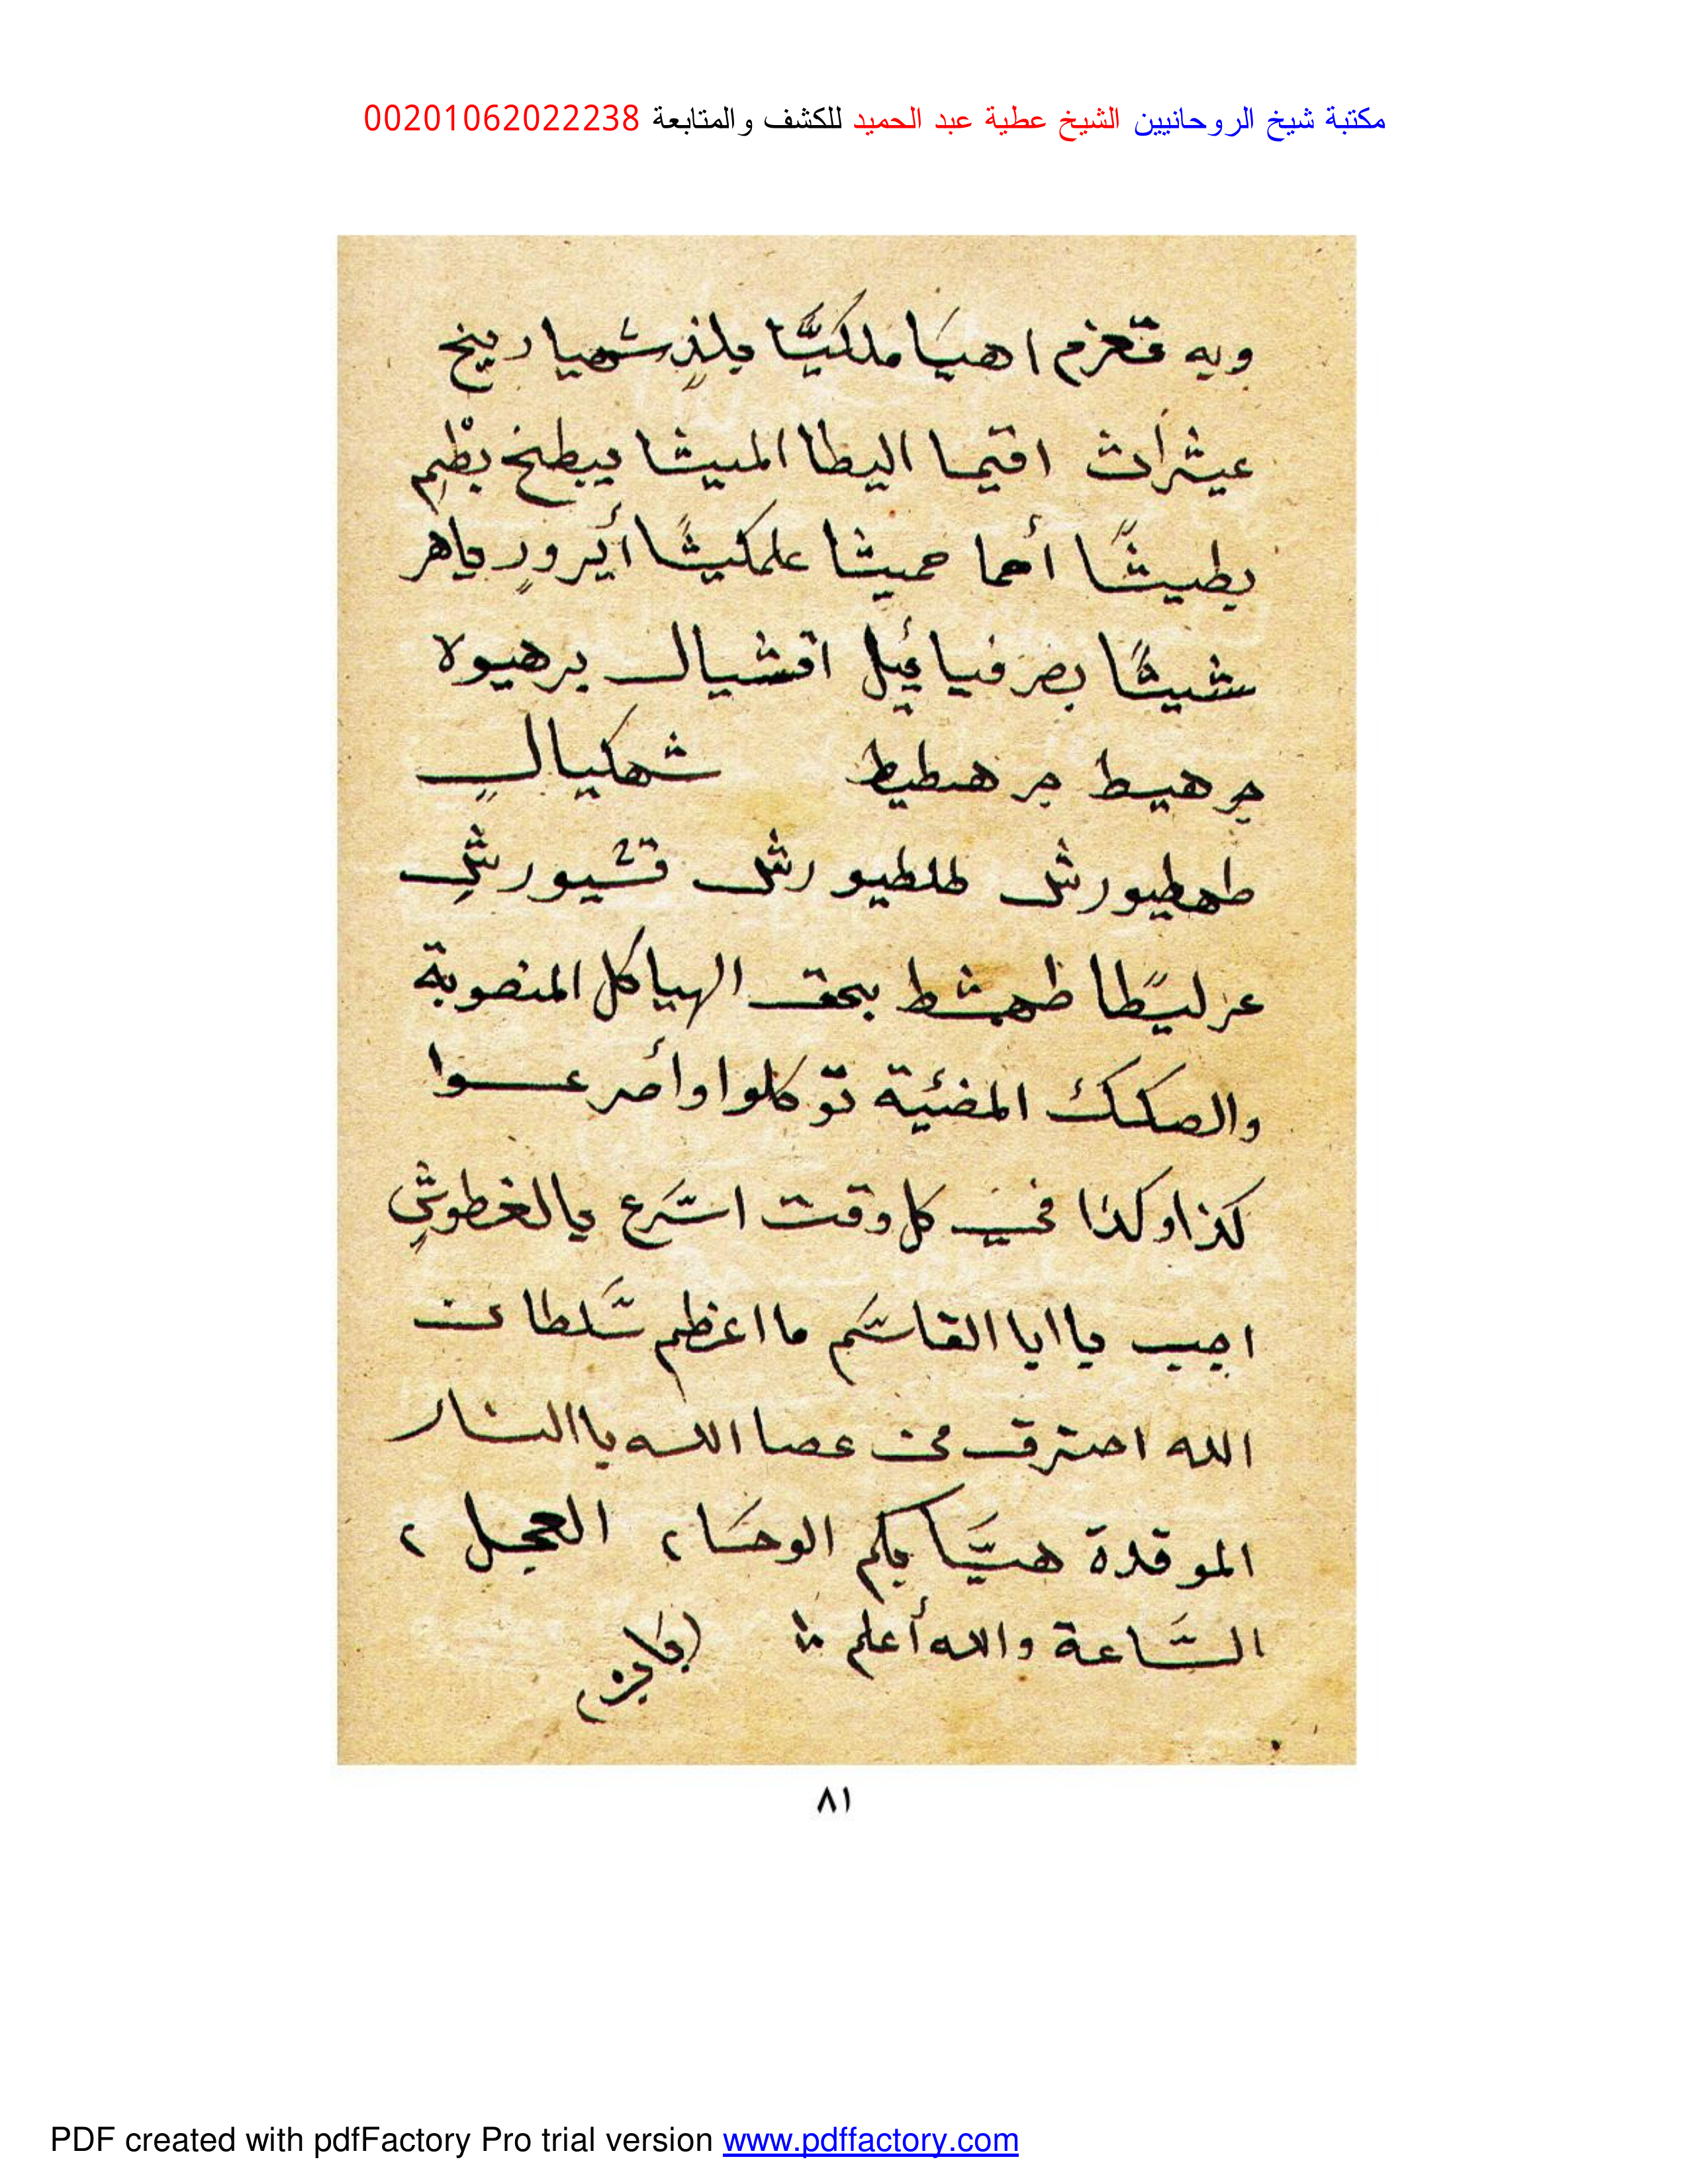 مكتبة شيخ الروحانيين الشيخ عطية عبد الحميد للكشف والمتابعة 00201062022238
وبه تعزم اهيا ملكيًّا يلذٍ شهيا ريخ
عيثرات اقتيما اليطا المىيثا يبطخ بطم
بطيثًا أحما حميثا علمكيثًا أيرورٍ ياهر
شيثًا بصرفيائيل اقشيال برهيولا
جرهيط جرهطيط شهكيالٍ
طهطيورش لطلطيورش قشيورشٍ
عزليطًا ظهشط بحق الهياكل المنصوبة
والصكك المضئية توكلوا وأصرعوا
كذا وكذا في كل وقت اسرع يالغطوشٍ
اجب يا ايا القاسم ما اعظم سلطا عن
الله احترق من عصا الله يا النار
الموقدة هيَّا بكم الوحا، العجل،
السَّاعة والله أعلم
٨١
PDF created with pdfFactory Pro trial version www.pdffactory.com